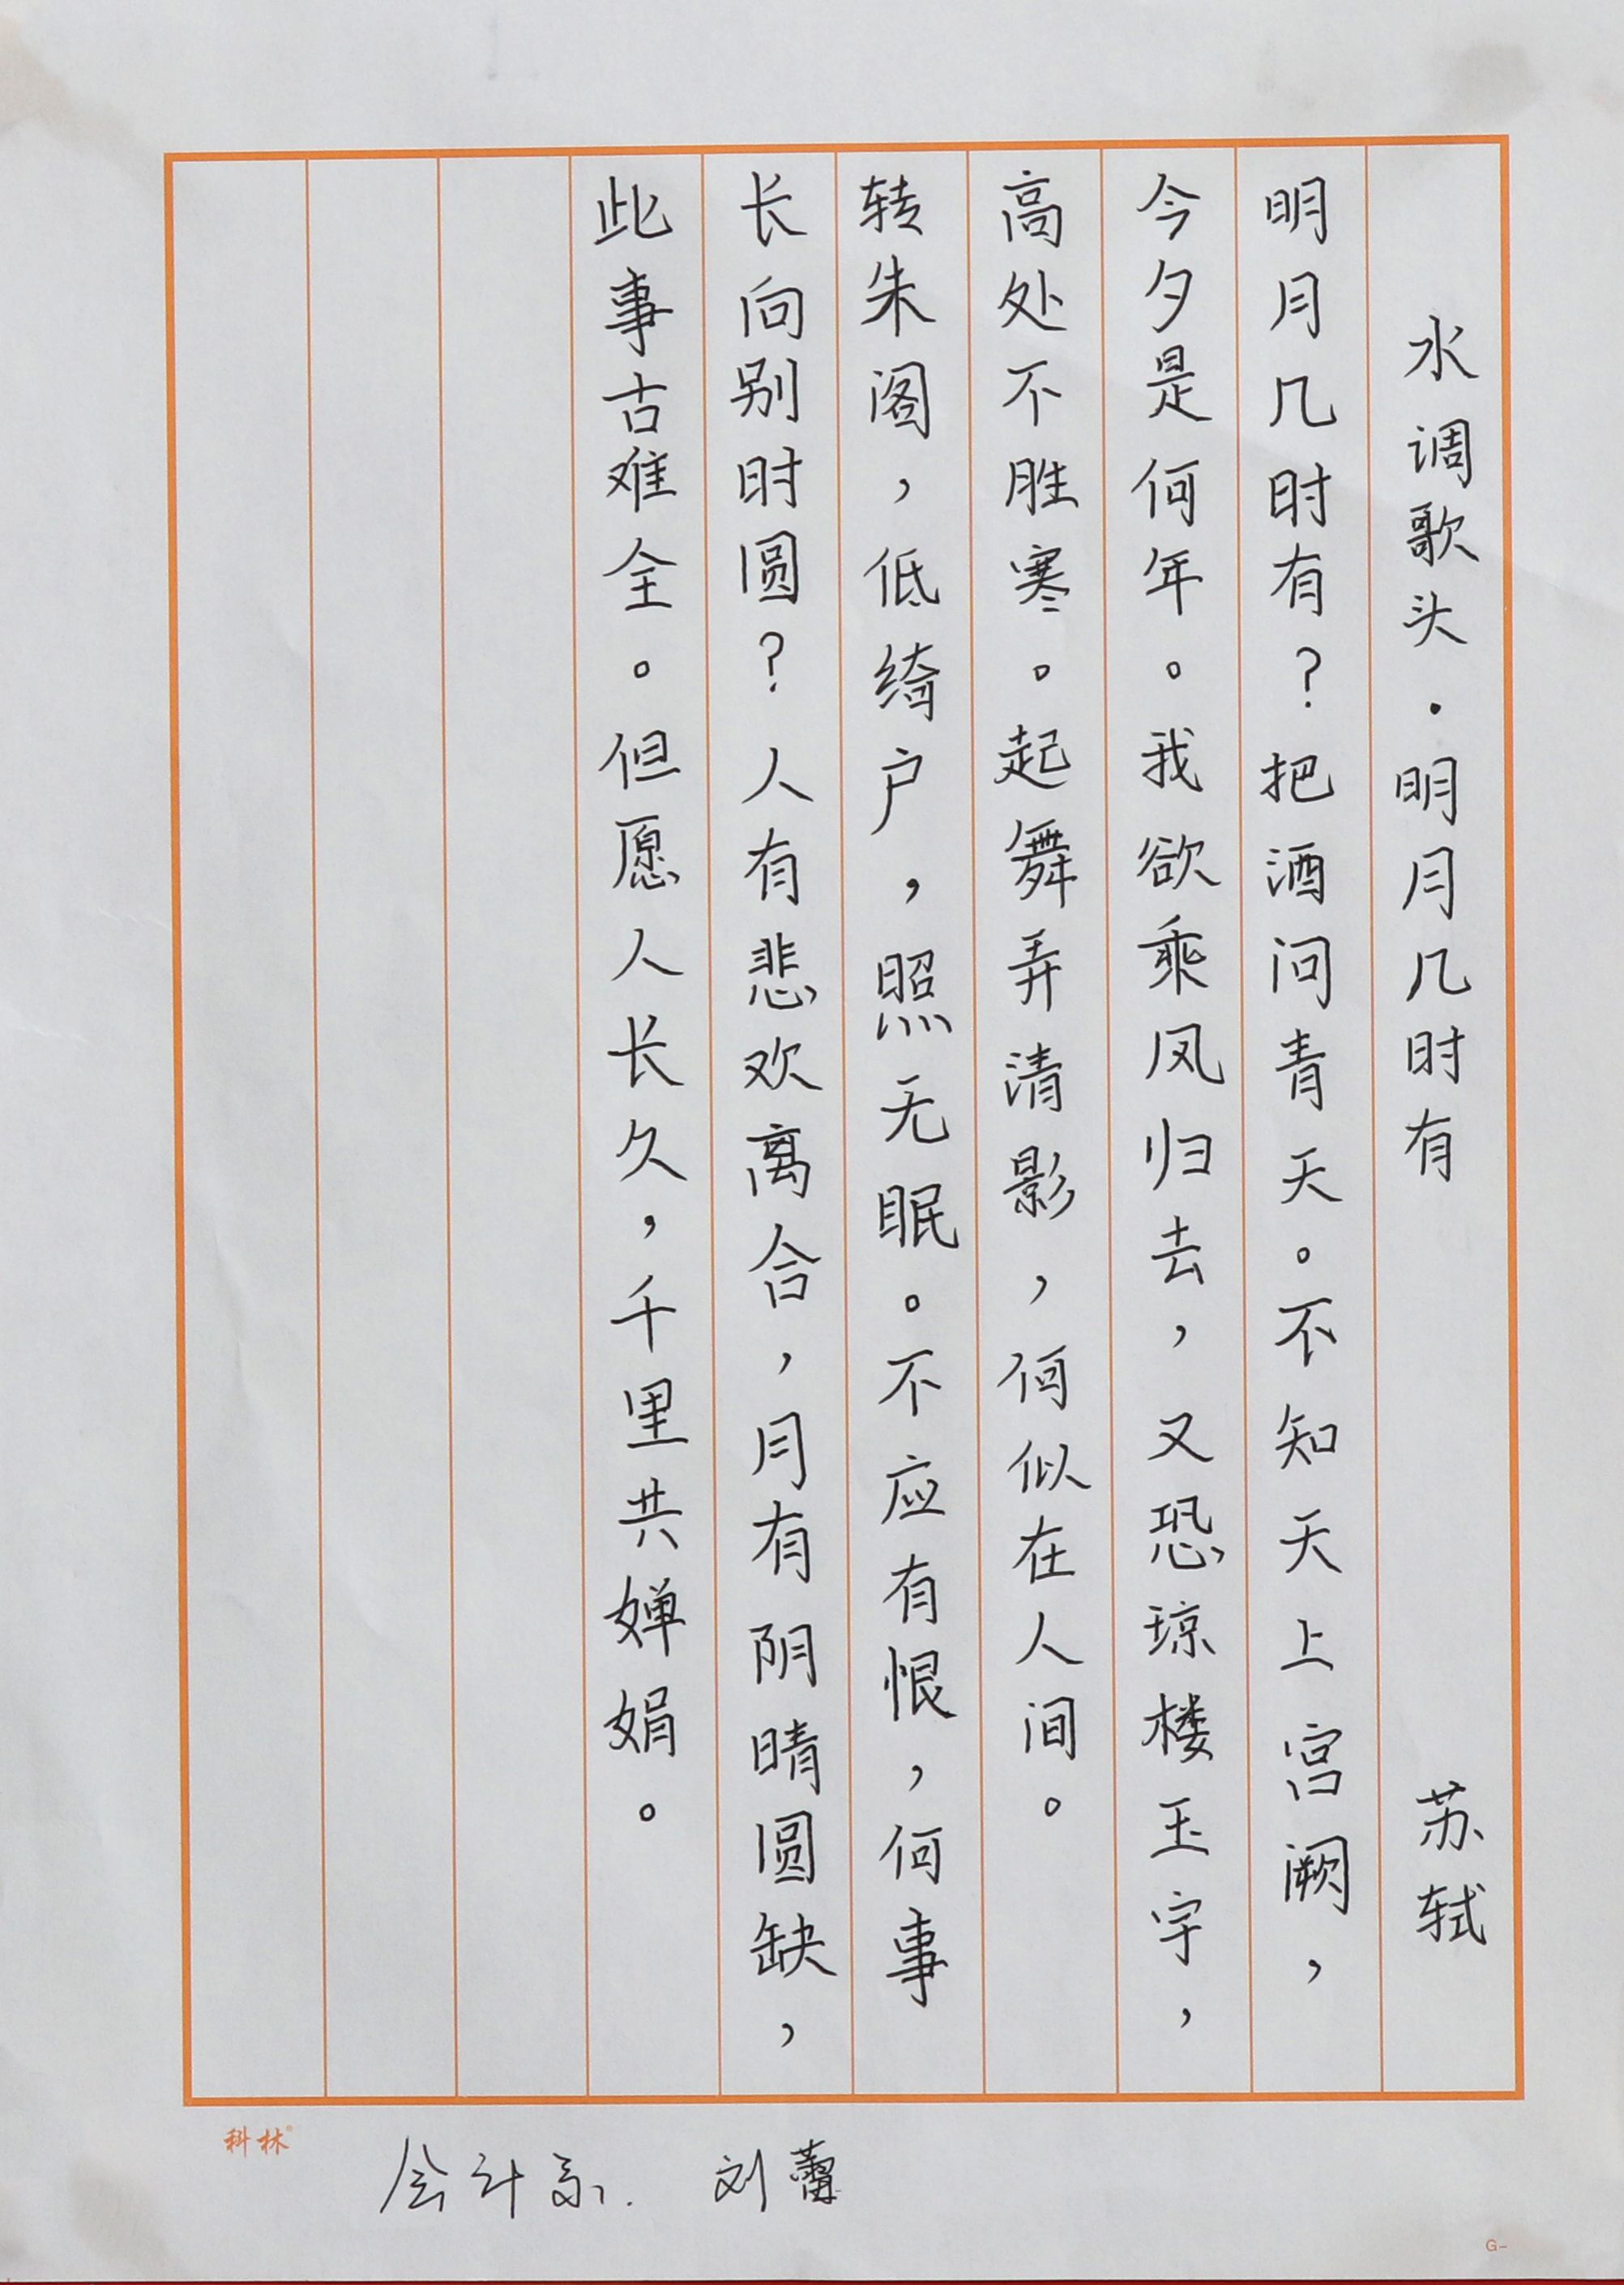 水调歌头·明月几时有 苏轼
明月几时有?把酒问青天。不知天上宫阙,
今夕是何年。我欲乘凤归去,又恐琼楼玉宇,
高处不胜寒。起舞弄清影,何似在人间。
转朱阁,低绮户,照无眠。不应有恨,何事
长向别时圆?人有悲欢离合,月有阴晴圆缺,
此事古难全。但愿人长久,千里共婵娟。
科林®
会计系. 刘蕾
G-